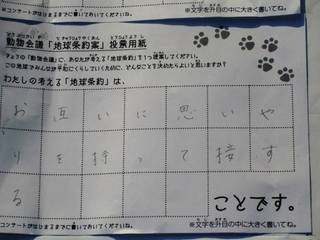 ※コンサートがはじまるまでに書いておいてくださいね。
※文字を升目の中に大きく書いてね。
動物会議「地球条約案」投票用紙
きょうの「動物会議」に、あなたが考える「地球条約」を1つ提案してください。
この地球でみんなが平和にくらしていくために、どんなことを決めたらよいと思いますか?
わたしの考える「地球条約」は、
お互いに思いや
りを持って接す
る
ことです。
コンサートがはじまるまでに書いておいてくださいね。
※文字を升目の中に大きく書いてね。